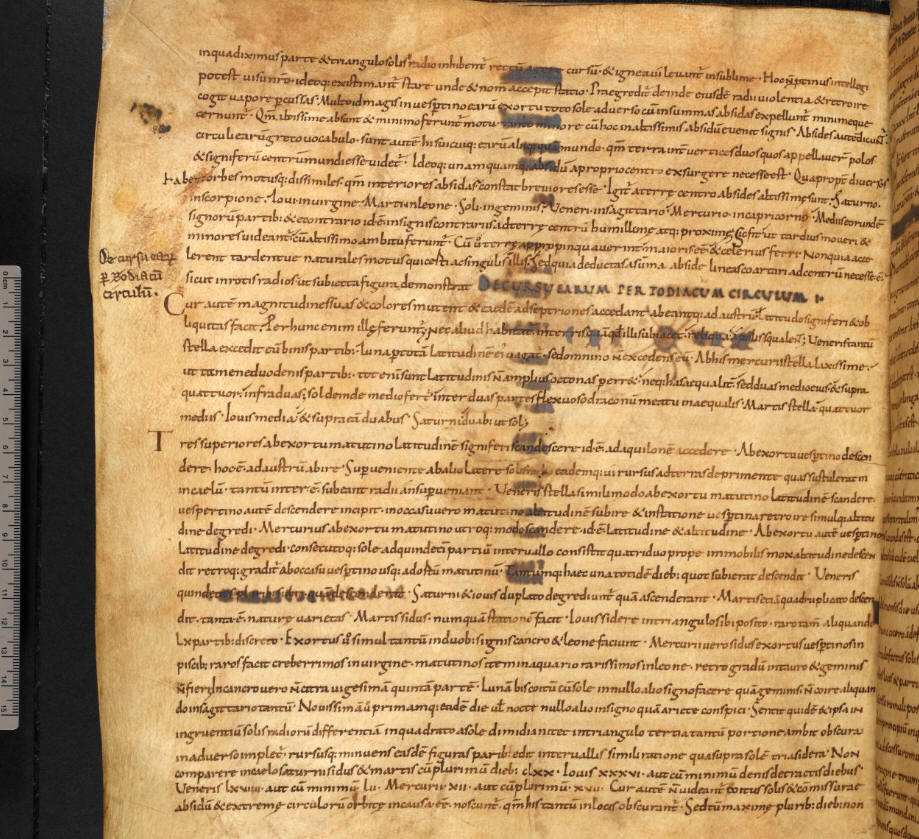 inquadiximus parte & triangulo solis radio inhibent rectū cursū· & igneaui leuant insublime· Hoc ñ ptinus intellegi
potest uisu nrō· ideoq existimant stare unde & nom̄ accepit statio· Praegredit deinde eiusdē radii uiolentia & retro ire
cogit uapore pcussas· Multo id magis inuespertino earū exortu toto sole aduerso cū insummas absidas expelluntur minimeque
cernunt· Qm̄ altissime absunt & minimo ferunt motu tanto minore cū hoc inaltissimis absidū euenit signis· Absides
circuli earū greco uocabulo· sunt autē hi suicuiq: mundo· qm̄ terra inter uertices duos quos appellauer polos
& signiferū centrū mundi esse uidet· Ideoq: unam quamq: a proprio centro exsurgere necesse est· Quapropt diuersos
habent orbes motusq: dissimiles· qm̄ interiores absidas constat breuiores esse· Igit a terrę centro absides altissimę sunt· Saturno·
inscorpione· Ioui in uirgine· Marti in leone· Soli· in geminis· Ueneri· in sagittario· Mercurio· in capricorno· Mediis eorundē
signorū partib: & e contrario
minores uideant: cū altissimo ambitu ferunt· Cū terrę appropinquauerint maiores ēē & celerius ferri· Non quia acce
lerent tardentue naturales motus qui certi ac singuli sunt illis· Sed quia deductas a sūma abside lineas coartari ad centrū necesse ē·
sicut in rotis radios ut subiecta figura demonstrat DE CURSU EARUM PER ZODIACUM CIRCULUM
De cursu earū
p zodiacū
circulū·
Cur autē magnitudines suas & colores mutent & eaedē ad septiones accedant abeantq: ad austrū· Latitudo signiferi & ob
liquitas facit· Per hunc enim illę ferunt· Nec aliud habitat
stella excedit eū binis partib:· luna p totā latitudinē ei uagat· sed omnino ñ excedens eū· Ab his mercurii stella laxissime·
ut tamen e duodenis partib:· tot enī sunt latitudinis ñ amplius octonas perre&· neq: has aequalit sed duas medio eius & supra
quattuor· infra duas; sol deinde medio fert inter duas partes flexuoso draconū meatu inaequalis· Martis stella quattuor
mediis· Iouis media & supra eā duabus· Saturni duab: ut sol;
Tres superiores ab exortu matutino latitudinē signiferi scandescere id ē ad aquilonē accedere· Ab exortu uesptino descen
dere· hoc ē· ad austrū abire· Superueniente ab alio latere solis eademq: ui rursus ad terras deprimente qua sustulerat in
in caelū· tantū inter ē· subeant radii an supueniant· Ueneris stella simili modo ab exortu matutino latitudinē scandere·
uespertino autē descendere incipit· in occasu uero matutino altitudinē subire & in statione uesptina retro ire simulq: altitu
dine degredi· Mercurius ab exortu matutino utroq: modo scandere· id ē latitudine & altitudine· Ab exortu autē uesptino
latitudine degredi· consecutoq: sole ad quindecī partiū interuallo consistit quatriduo prope immobilis mox altitudine descen
dit retroq: gradit ab occasu uesptino usq: ad ortū matutinū· Tantūq: haec una totidē dieb: quot subierat descendit· Ueneris
Saturni & iouis duplato degrediunt quā ascenderant· Martis etiā quadruplicato descen
dit· tanta ē naturę uarietas· Martis sidus· numquā statione facit· Iouis sidere in triangulo sibi posito· raro tam̄ aliquando
Lx partib: discreto· Exortus ū simul tantū in duob: signis cancro & leone faciunt· Mercurii uero sidus exortus uesptinos in
piscib; raros facit creberrimos in uirgine· matutinos item in aquario rarissimos in leone· retro gradū in tauro & geminis
ñ fieri· In cancro uero ñ citra uigesimā quintā partē· Lunā bis coitū cū sole in nullo alio signo facere quā geminis ñ coire aliquan
do in sagittario tantū· Nouissimā ū primamq: eadē die ul nocte nullo alio in signo quā ariete conspici· Sentit quidē & ipsa in
ingruentiū solis radiorū differentiā in quadrato a sole dimidia
in aduerso implet· rursusq: minuens easdē figuras parib: edit interuallis simili ratione qua supra solē tria sidera· Non
comparere in caelo saturni sidus & martis cū plurimū dieb: clxx· Iouis xxxvi· aut cū minimū denis detractis diebus
Ueneris lxviiii· aut cū minimū lii· Mercurii· xii· aut cū plurimū· xvii· Cur autē ñ uideant
absidū & extremę circulorū orbitę in causa ēē noscunt· qm̄ his tantū in locis obscurant· Sed tū maximę plurib: dieb: non